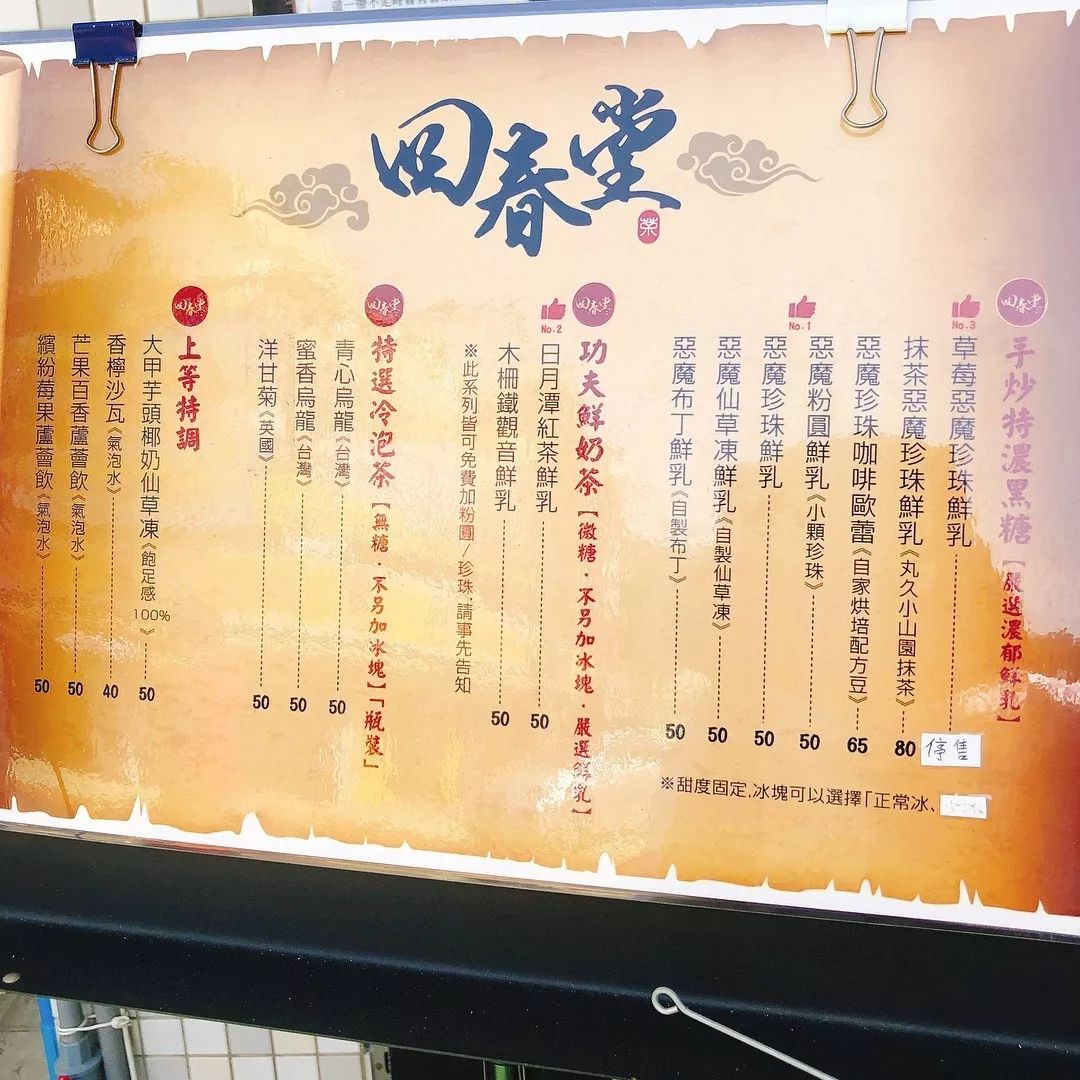 回春堂
茶
回春堂
手炒特濃黑糖【嚴選濃郁鮮乳】
No.3
草莓惡魔珍珠鮮乳 停售
抹茶惡魔珍珠鮮乳《丸久小山園抹茶》 80
惡魔珍珠咖啡歐蕾《自家烘培配方豆》 65
惡魔粉圓鮮乳《小顆珍珠》 50
No.1
惡魔珍珠鮮乳 50
惡魔仙草凍鮮乳《自製仙草凍》 50
惡魔布丁鮮乳《自製布丁》 50
※甜度固定,冰塊可以選擇「正常冰、
回春堂
功夫鮮奶茶【微糖·不另加冰塊·嚴選鮮乳】
No.2
日月潭紅茶鮮乳 50
木柵鐵觀音鮮乳 50
※此系列皆可免費加粉圓/珍珠,請事先告知
回春堂
特選冷泡茶【無糖·不另加冰塊】「瓶裝」
青心烏龍《台灣》 50
蜜香烏龍《台灣》 50
洋甘菊《英國》 50
回春堂
上等特調
大甲芋頭椰奶仙草凍《飽足感100%》 50
香檸沙瓦《氣泡水》 40
芒果百香蘆薈飲《氣泡水》 50
繽紛莓果蘆薈飲《氣泡水》 50